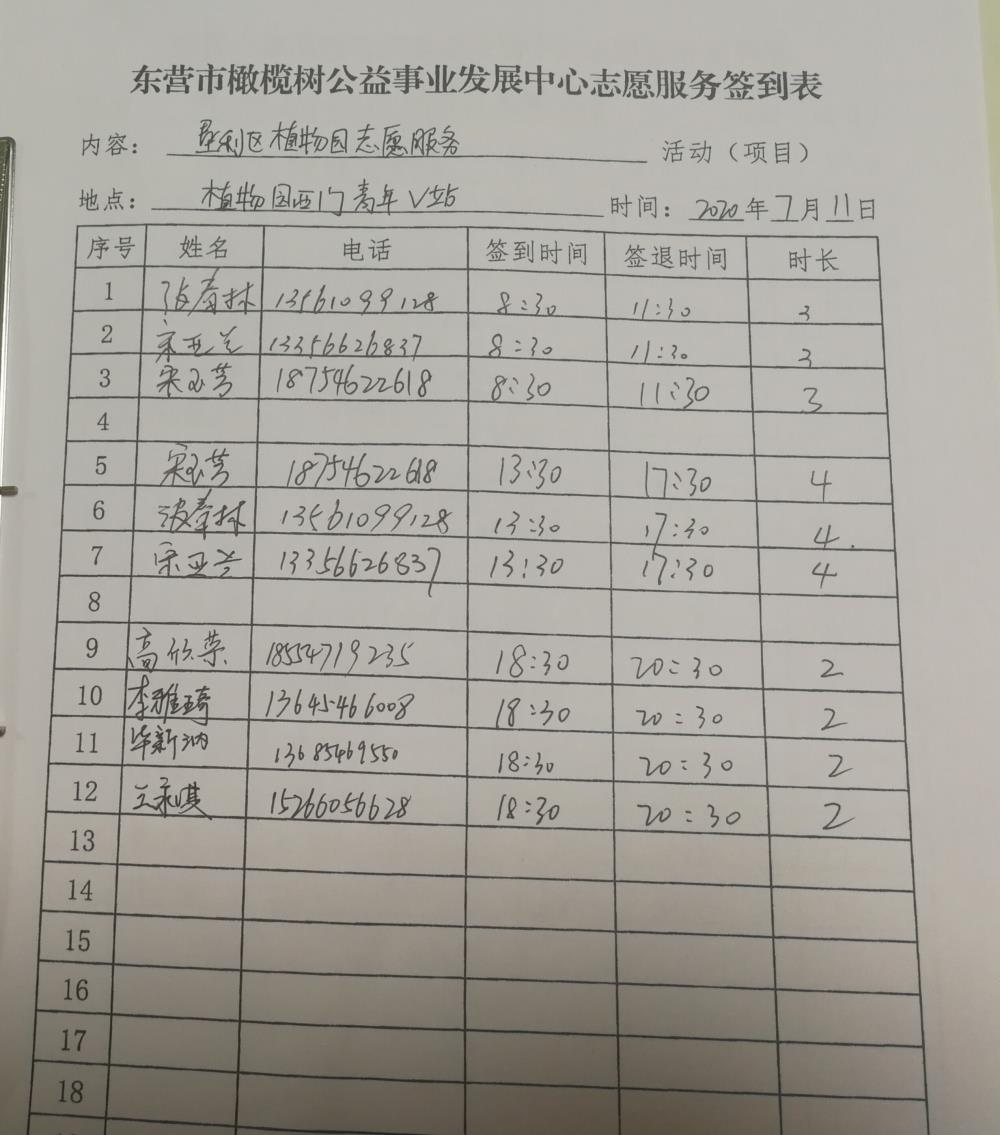 东营市橄榄树公益事业发展中心志愿服务签到表
内容： 垦利区植物园志愿服务 活动（项目）
地点： 植物园西门青年V站 时间： 2020年7月11日
序号 姓名 电话 签到时间 签退时间 时长
1 13561099128 8:30 11:30 3
2 宋亚兰 13356626837 8:30 11:30 3
3 宋玉芳 18754622618 8:30 11:30 3
4
5 宋玉芳 18754622618 13:30 17:30 4
6 13561099128 13:30 17:30 4.
7 宋亚兰 13356626837 13:30 17:30 4
8
9 高欣荣 18554719235 18:30 20:30 2
10 李雅琦 13645466008 18:30 20:30 2
11 毕新汭 13685469550 18:30 20:30 2
12 王永琪 15266056628 18:30 20:30 2
13
14
15
16
17
18